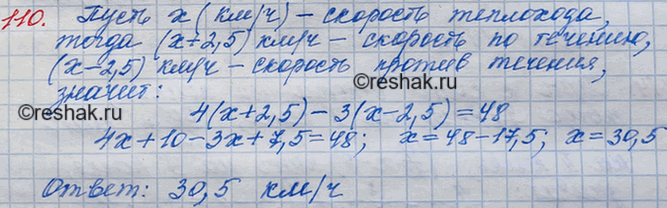 110. Пусть x (км/ч) – скорость теплохода,
тогда (x+2,5) км/ч – скорость по течению,
(x–2,5) км/ч – скорость против течения,
значит:
©reshak.ru
©reshak.ru
4(x+2,5) – 3(x–2,5) = 48
4x+10–3x+7,5=48; x=48–17,5; x=30,5
©reshak.ru
Ответ: 30,5 км/ч